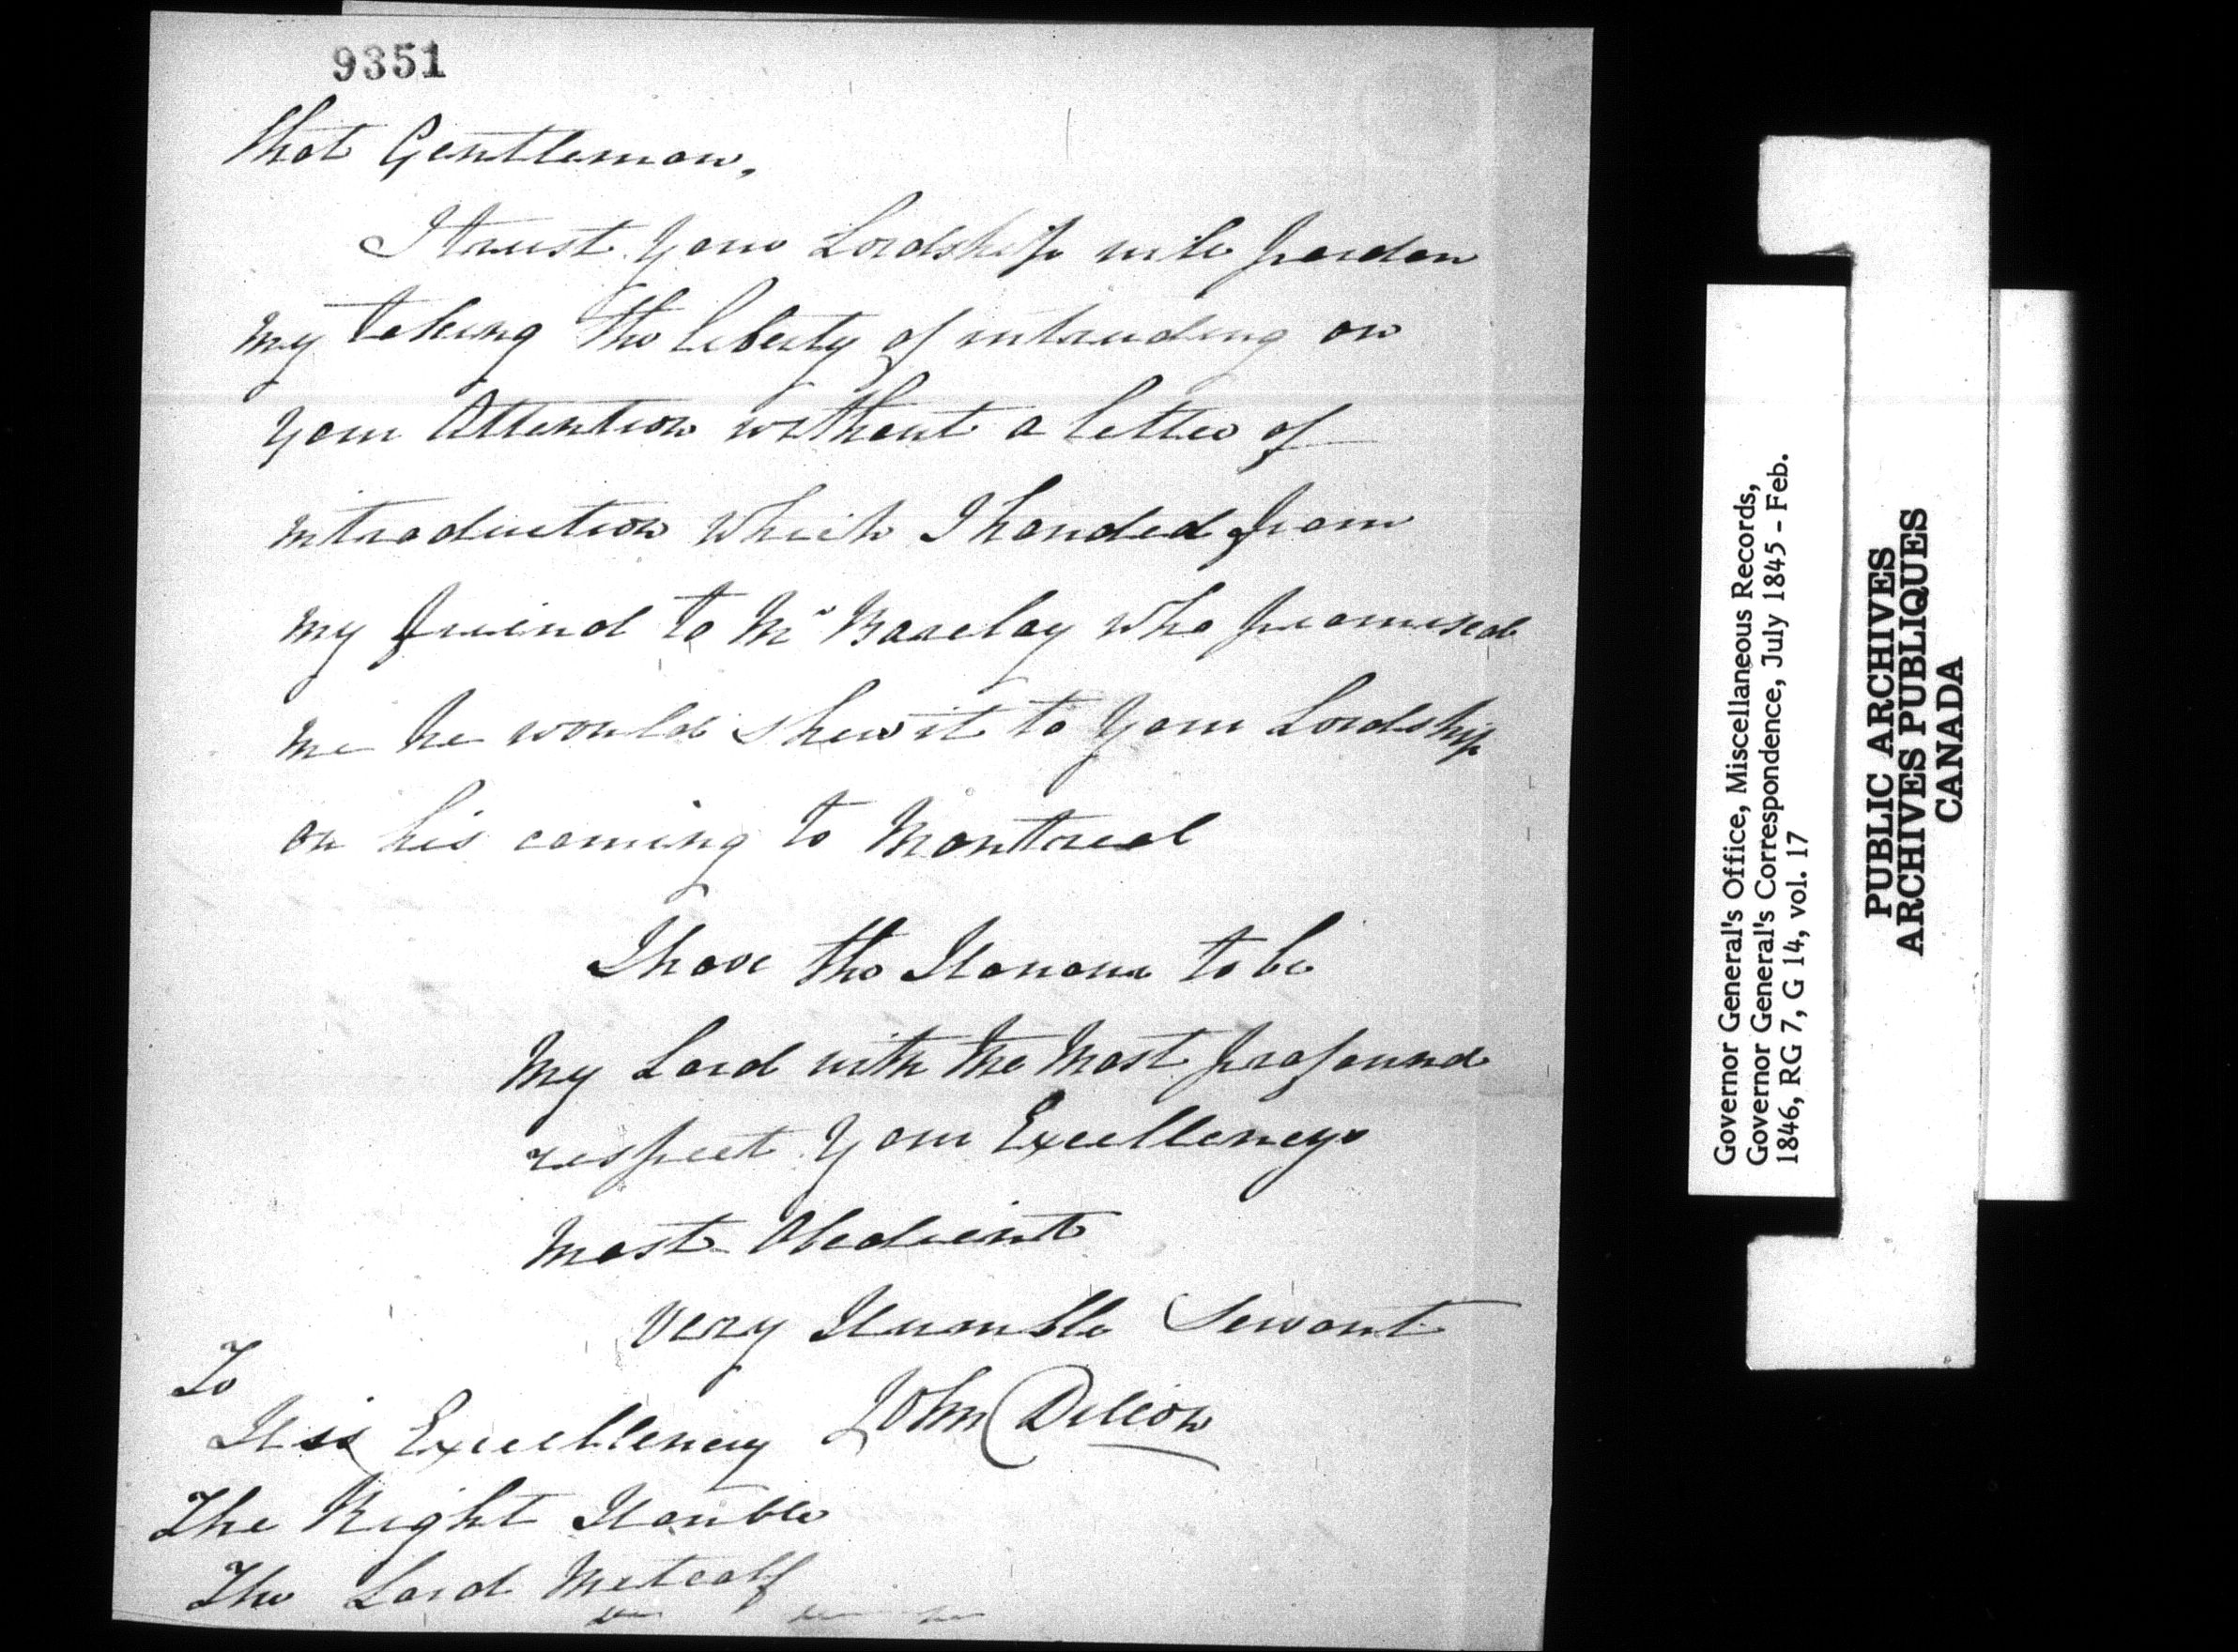 9351
that Gentleman,
I trust Your Lordship will pardon
my taking the liberty of intruding on
Your Attention without a letter of
introduction which I handed from
my friend to Mr Barclay who promised
me he would shew it to Your Lordship
on his coming to Montreal
I have the Honour to be
My Lord with the most profound
respect Your Excellencys
Most Obedient
very Humble Servant
John Dillon
To
His Excellency
The Right Honble
The Lord Metcalf
Governor General's Office, Miscellaneous Records,
Governor General's Correspondence, July 1845 - Feb.
1846, RG 7, G 14, vol. 17
PUBLIC ARCHIVES
ARCHIVES PUBLIQUES
CANADA